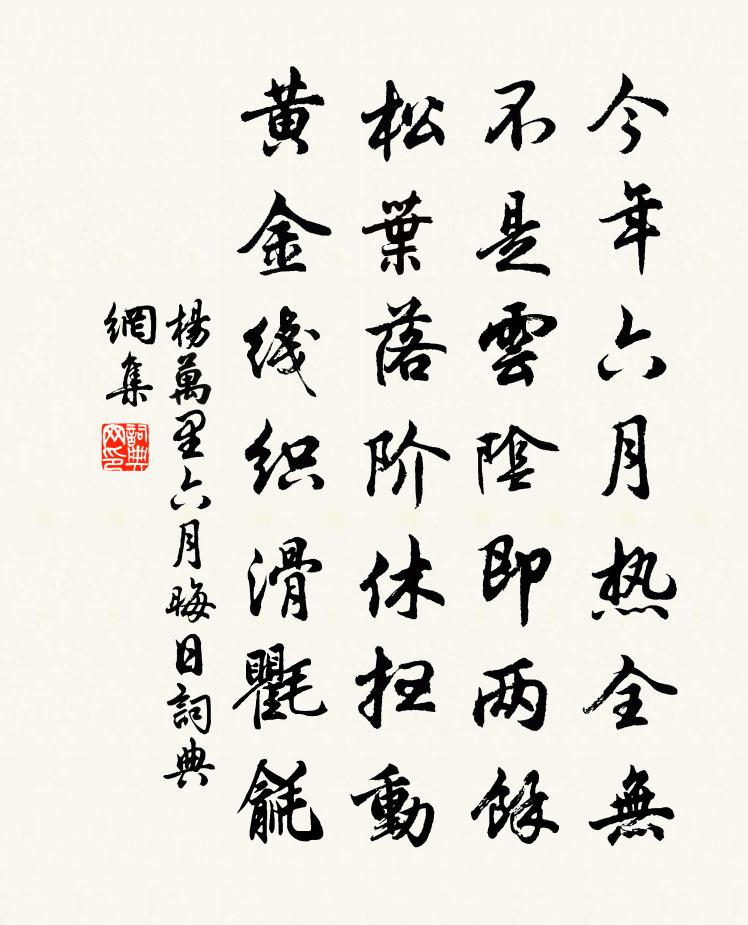 今年六月热全無
不是雲陰即两餘
松葉落阶休扫動
黄金线织滑氍毹
楊萬里六月晦日詞典
網集
詞典
网印